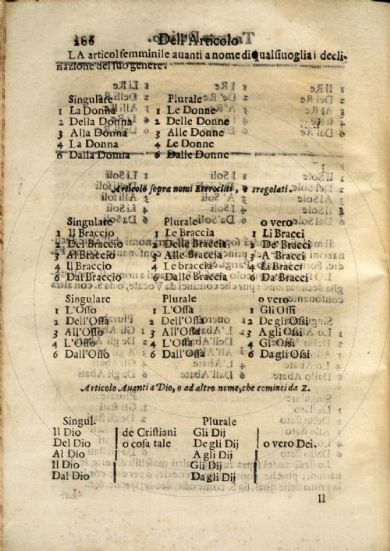 166 Dell'Articolo
LA articol femminile auanti a nome di qualsiuoglia decli-
nazione del suo genere.
Singulare Plurale
1 La Donna 1 Le Donne
2 Della Donna 2 Delle Donne
3 Alla Donna 3 Alle Donne
4 La Donna 4 Le Donne
6 Dalla Donna 6 Dalle Donne
Articolo sopra nomi Eterocliti, o irregolati.
Singulare Plurale o vero
1 Il Braccio 1 Le Braccia 1 Li Bracci
2 Del Braccio 2 Delle Braccia 2 De' Bracci
3 Al Braccio 3 Alle Braccia 3 A' Bracci
4 Il Braccio 4 Le braccia 4 Li Bracci
6 Dal Braccio 6 Dalle Braccia 6 Da' Bracci
Singulare Plurale o vero
1 L'Osso 1 L'Ossa 1 Gli Ossi
2 Dell'Osso 2 Dell'Ossa 2 Degli Ossi
3 All'Osso 3 All'Ossa 3 Agli Ossi
4 L'Osso 4 L'Ossa 4 Gli Ossi
6 Dall'Osso 6 Dall'Ossa 6 Dagli Ossi
Articolo Auanti a Dio, o ad altro nome, che cominci da Z.
Singul. Plurale
Il Dio de Cristiani Gli Dij
Del Dio o cosa tale Degli Dij o vero Dei.
Al Dio Agli Dij
Il Dio Gli Dij
Dal Dio Dagli Dij
Il